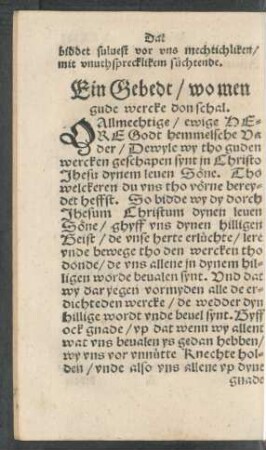 Dat
biddet sulvest vor vns mechtichliken/
mit vnuthsprecklikem süchtende.
Ein Gebedt / wo men
gude wercke don schal.
O Allmechtige / ewige HE-
RE Godt hemmelsche Va
der / Dewyle wy tho guden
wercken geschapen synt in Christo
Jhesu dynem leuen Söne. Tho
welckeren du vns tho vörne berey-
det heffst. So bidde wy dy dorch
Jhesum Christum dynen leuen
Söne / ghyff vns dynen hilligen
Geist / de vnse herte erlüchte / lere
vnde bewege tho den wercken tho
donde / de vns allene jn dynem hil-
ligen worde beualen synt. Vnd dat
wy dar yegen vormyden alle de er-
dichteden wercke / de wedder dyn
hillige wordt vnde beuel synt. Gyff
ock gnade / vp dat wenn wy allent
wat vns beualen ys gedan hebben /
wy vns vor vnnütte Knechte hol-
den / vnde also vns allene vp dyne
gnade